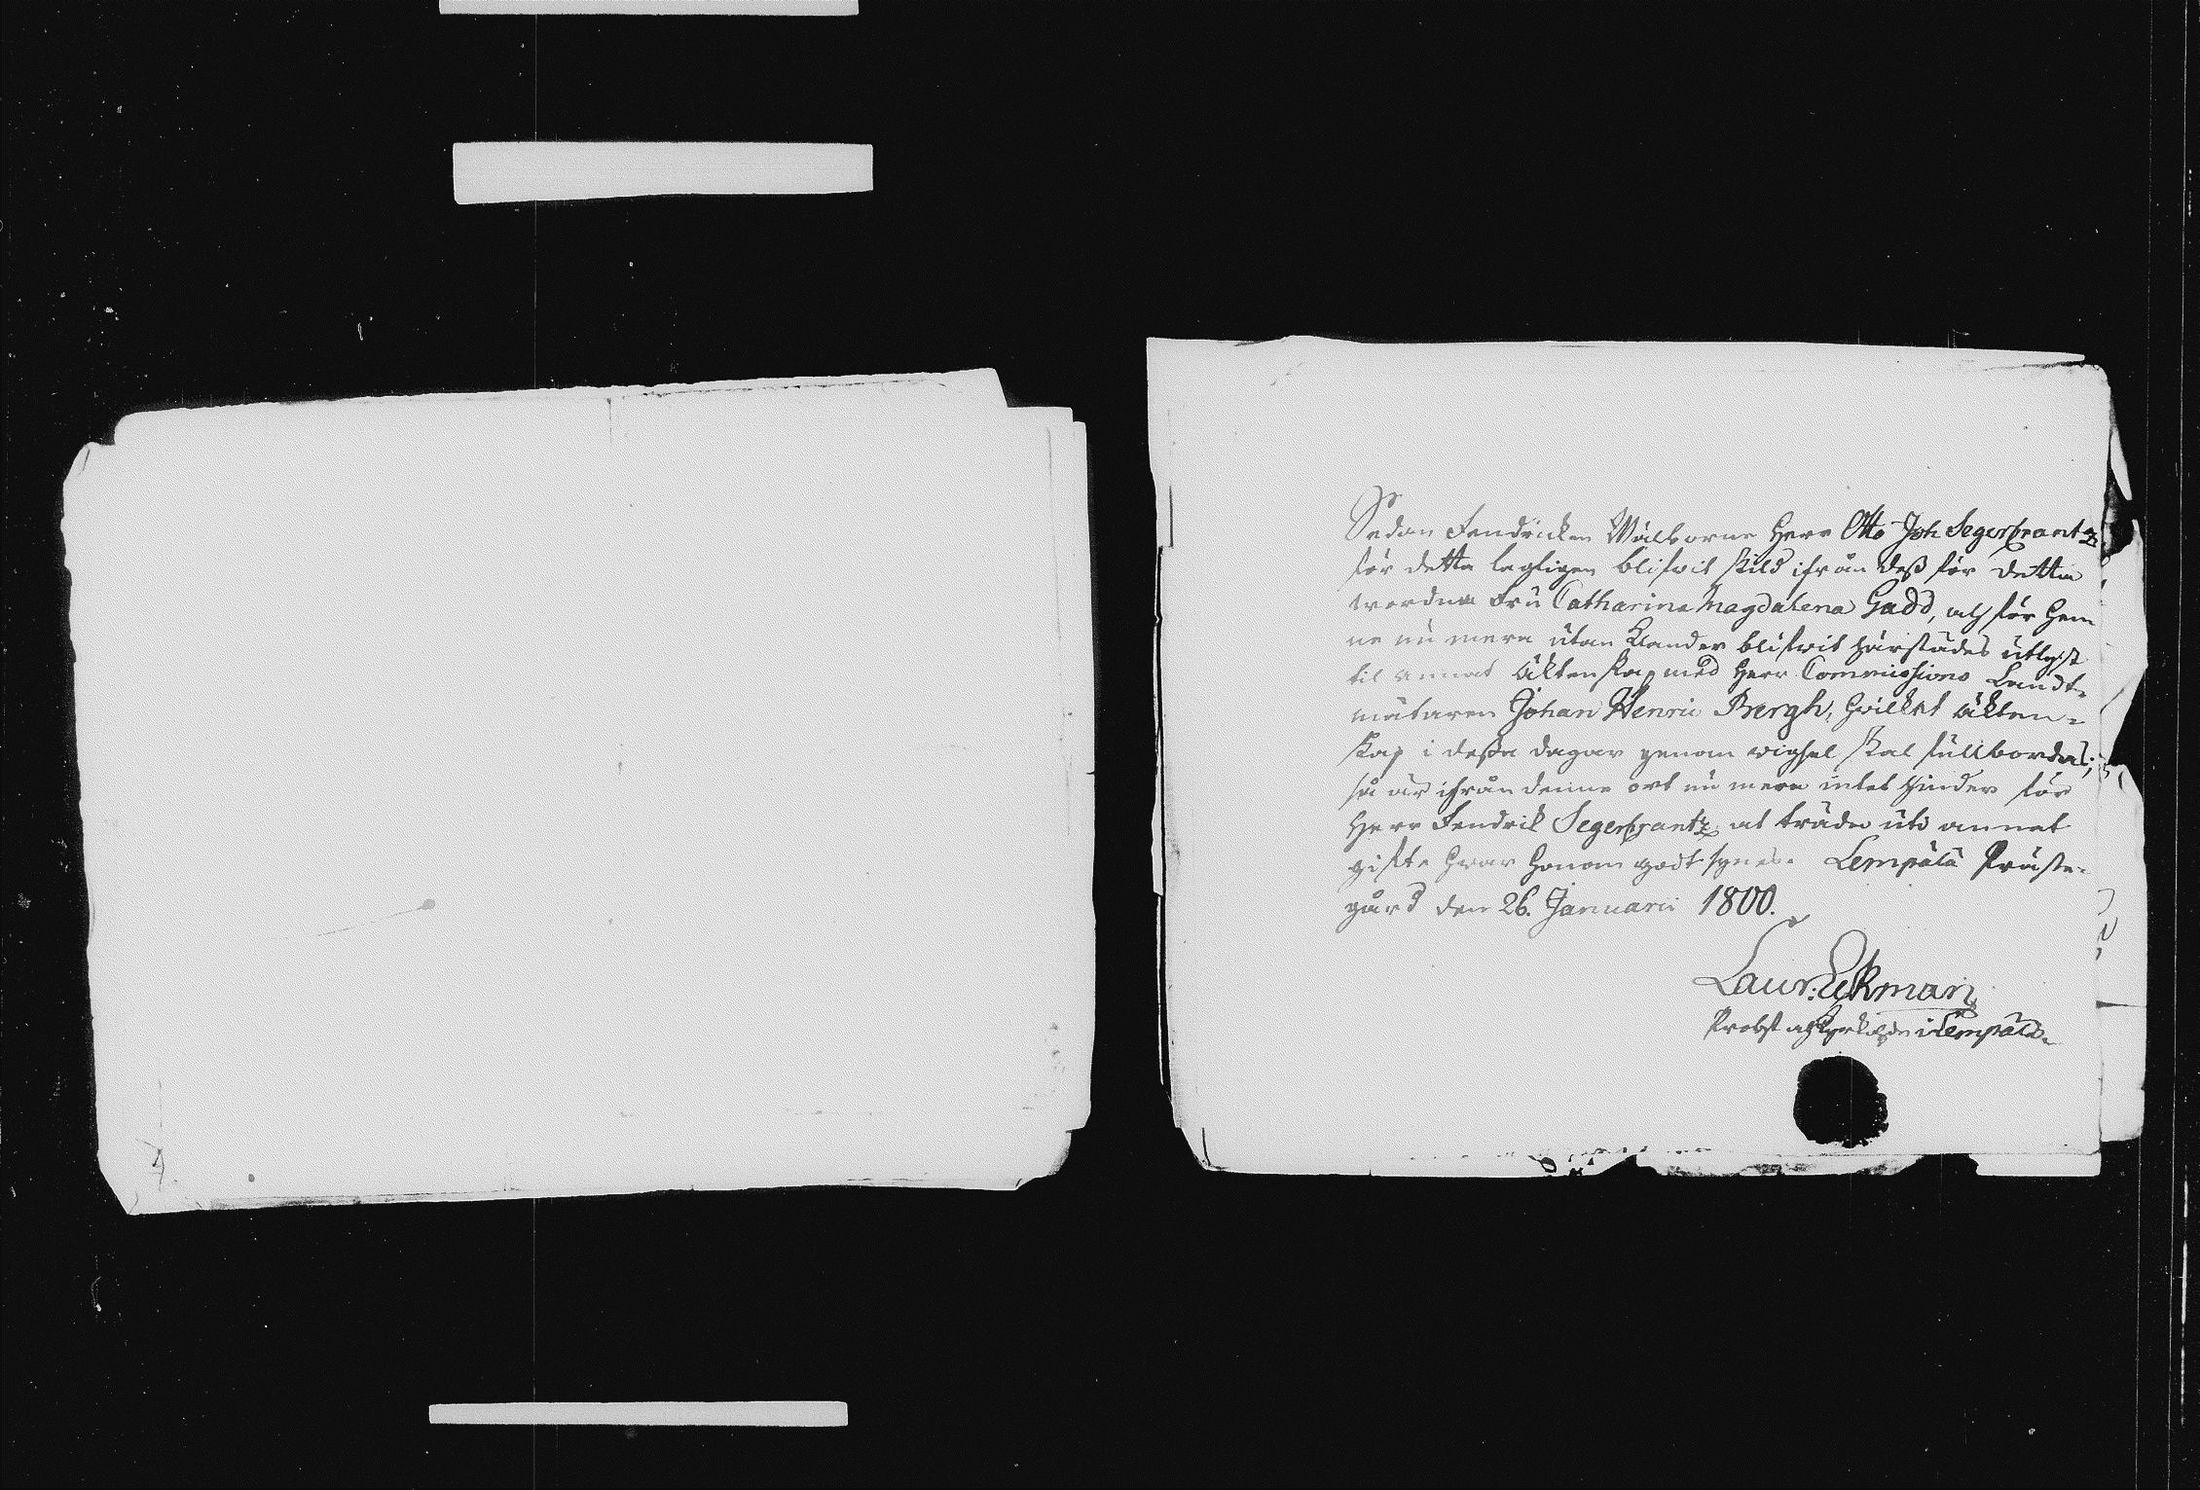 Sedan Fendricken Wälborne Herr Otto Joh Segercrantz
för detta lagligen blifwit skild ifrån dess för detta
wordna Fru Catharina Magdalena Gadd, och för hen
ne nu mera utan Klander blifwit härstädes utlyst
til annat äktenskap med Herr Commissions Landt-
mätaren Johan Henric Bergh, hvilket äkten-
skap i dessa dagar genom wigsel skal fullbordas;
så är ifrån denne ort nu mera intet hinder för
Herr Fendrik Segercrantz at träda uti annat
gifte hvar honom godt synes. Lempälä Präste-
gård den 26. Januarii 1800.
Laur. Eckman
Probst och Kyrkoherde i Lempälä.